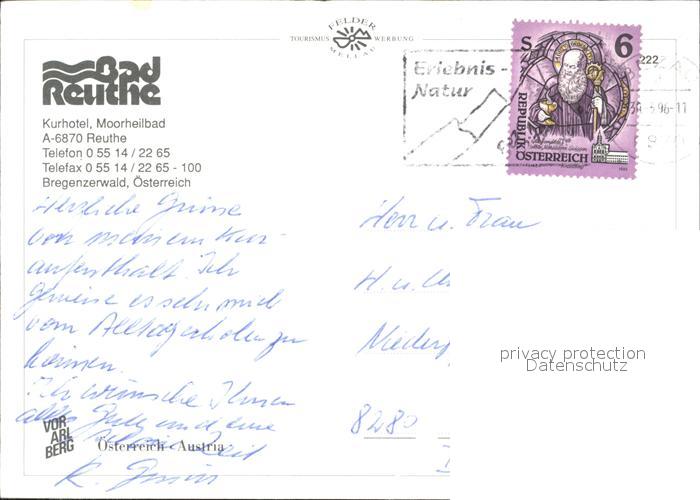 FELDER
TOURISMUS WERBUNG
MELLAU
Bad
Reuthe
Kurhotel, Moorheilbad
A-6870 Reuthe
Telefon 0 55 14 / 22 65
Telefax 0 55 14 / 22 65 - 100
Bregenzerwald, Österreich
Erlebnis -
Natur
S 6
REPUBLIK
ÖSTERREICH
222
96-11
Herzliche Grüsse
von meinem Kur-
aufenthalt. Ich
geniesse es sehr mich
vom Alltag erholen zu
können.
Ich wünsche Ihnen
alles Gute und eine
Zeit
K.
Herr u. Frau
H. u.
8280
VOR
ARL
BERG
Österreich - Austria
privacy protection
Datenschutz